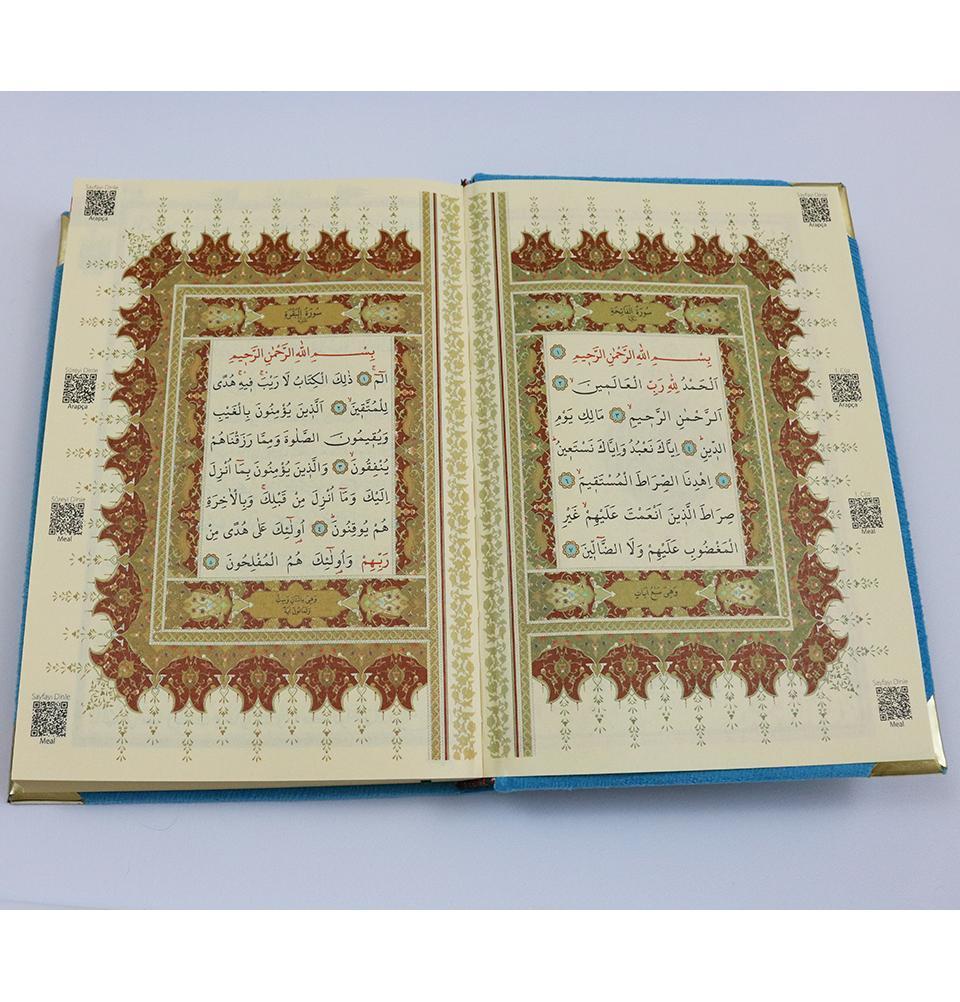 Sayfayı Dinle
Arapça
1. Cüz
Arapça
1. Cüz
Meal
Sayfayı Dinle
Meal
سُورَةُ الْفَاتِحَةِ
بِسْمِ اللّٰهِ الرَّحْمٰنِ الرَّحِيمِ ١
اَلْحَمْدُ لِلّٰهِ رَبِّ الْعَالَمِينَ ٢
اَلرَّحْمٰنِ الرَّحِيمِ ٣ مَالِكِ يَوْمِ
الدِّينِ ٤ اِيَّاكَ نَعْبُدُ وَاِيَّاكَ نَسْتَعِينُ
٥ اِهْدِنَا الصِّرَاطَ الْمُسْتَقِيمَ ٦
صِرَاطَ الَّذِينَ اَنْعَمْتَ عَلَيْهِمْ غَيْرِ
الْمَغْضُوبِ عَلَيْهِمْ وَلَا الضَّٓالِّينَ ٧
وَهِيَ سَبْعُ اٰيَاتٍ
Sayfayı Dinle
Arapça
Sûreyi Dinle
Arapça
Sûreyi Dinle
Meal
Sayfayı Dinle
Meal
سُورَةُ الْبَقَرَةِ
بِسْمِ اللّٰهِ الرَّحْمٰنِ الرَّحِيمِ
الٓمٓ ١ ذٰلِكَ الْكِتَابُ لَا رَيْبَ فِيهِ هُدًى
لِلْمُتَّقِينَ ٢ اَلَّذِينَ يُؤْمِنُونَ بِالْغَيْبِ
وَيُقِيمُونَ الصَّلٰوةَ وَمِمَّا رَزَقْنَاهُمْ
يُنْفِقُونَ ٣ وَالَّذِينَ يُؤْمِنُونَ بِمَٓا اُنْزِلَ
اِلَيْكَ وَمَٓا اُنْزِلَ مِنْ قَبْلِكَ وَبِالْاٰخِرَةِ
هُمْ يُوقِنُونَ ٤ اُو۬لٰٓئِكَ عَلٰى هُدًى مِنْ
رَبِّهِمْ وَاُو۬لٰٓئِكَ هُمُ الْمُفْلِحُونَ ٥